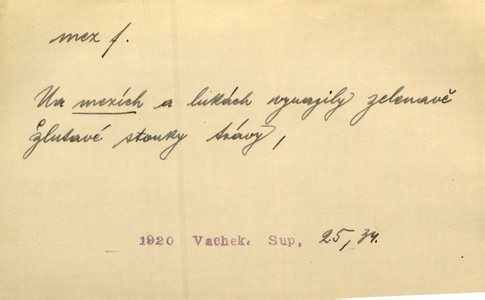 mez f.
Na mezích a lukách vyrazily zelenavě
žlutavé stonky trávy,
1920 Vachek. Sup, 25, 34.